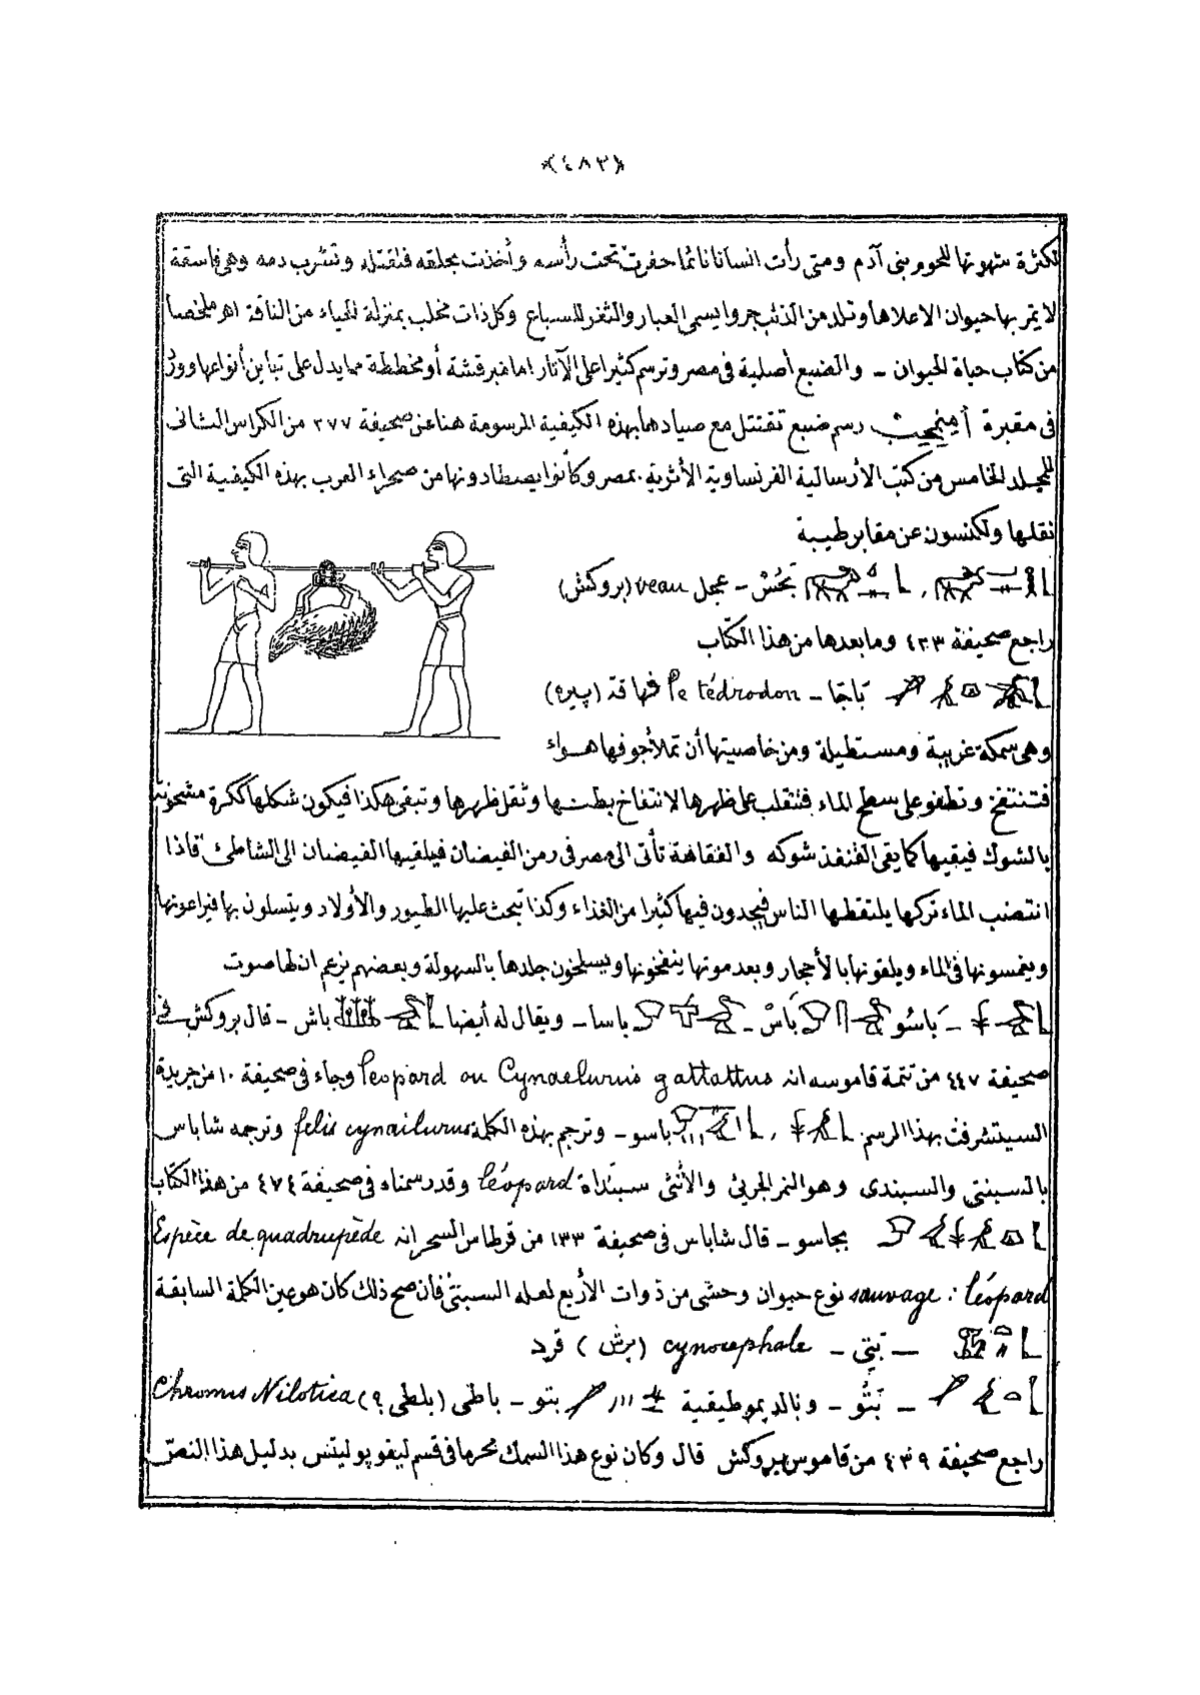 ﴿٤٨٣﴾
لكثرة شهوتها للحوم بنى آدم ومتى رأت انسانا نائما حفرت تحت رأسه وأخذت بحلقه فتقتله وتشرب دمه وهى فاسقة
لا يمر بها حيوان الا علاها وتلد من الذئب جروا يسمى العبار والثفر للسباع وكل ذات مخلب بمنزلة الحياء من الناقة اهر ملخصا
من كتاب حياة الحيوان ـ والضبع أصلية فى مصر وترسم كثيرا على الآثار اما مبرقشة أو مخططة مما يدل على تباين أنواعها وورد
فى مقبرة رسم ضبع تقتتل مع صيادها بهذه الكيفية المرسومة هنا عن صحيفة ٣٧٧ من الكراس الثانى
للمجلد الخامس من كتب الأرسالية الفرنساوية الأثرية بمصر وكانوا يصطادونها من صحراء العرب بهذه الكيفية التى
نقلها ولكنسون عن مقابر طيبة
بَحُسْ ـ عجل veau (بروكش)
راجع صحيفة ٤٣٣ وما بعدها من هذا الكتاب
بَاجَا ـ le tédrodon فهاقة (پيره)
وهى سمكة غريبة ومستطيلة ومن خاصيتها أن تملأ جوفها هواء
فتنتفخ وتطفو على سطح الماء فتنقلب على ظهرها لانتفاخ بطنها وثقل ظهرها وتبقى هكذا فيكون شكلها ككرة مشحونة
بالشوك فيقيها كما يقى القنفذ شوكه والفقاهة تأتى الى مصر فى زمن الفيضان فيلقيها الفيضان الى الشاطئ فاذا
انتصب الماء تركها يلتقطها الناس فيجدون فيها كثيرا من الغذاء وكذا تبحث عليها الطيور والأولاد ويتسلون بها فيراعونها
ويغمسونها فى الماء ويلقونها بالأحجار وبعد موتها ينفخونها ويسلخون جلدها بالسهولة وبعضهم يزعم ان لها صوت
ـ بَاسُو بَاسْ ـ باسا ـ ويقال له أيضا باش ـ قال بروكش فى
صحيفة ٤٤٧ من تتمة قاموسه انه leopard ou Cynaelurus gattattus وجاء فى صحيفة ١٠ من جريدة
السيتشرفت بهذا الرسم , باسو ـ وترجم بهذه الكلمة felis cynailurus وترجمه شاباس
بالسبنتى والسبندى وهو النمر الجرئ والأنثى سبنداة léopard وقد رسمناه فى صحيفة ٤٧٤ من هذا الكتاب
بجاسو ـ قال شاباس فى صحيفة ١٣٣ من قرطاس السحر انه Espèce de quadrupède
sauvage : léopard نوع حيوان وحشى من ذوات الأربع لعله السبنتى فان صح ذلك كان هو عين الكلمة السابقة
ـ بَنِتِى ـ cynocephale (برش) قرد
ـ بَتُو ـ وبالديموطيقية بتو ـ باطى (بلطى ؟) Chromis Nilotica
راجع صحيفة ٤٣٩ من قاموس بروكش قال وكان نوع هذا السمك محرما فى قسم ليفوپوليتس بدليل هذا النص